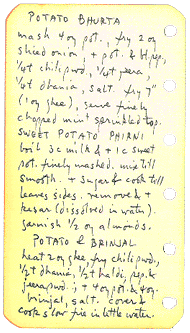 POTATO BHURTA
mash 4oy pot., fry 2oy
sliced onion, + pot. & bl.pep.
1/4t chili pwd, 1/4t jeera,
1/4t dhania, salt. fry 7"
(1oy ghee), serve finely
chopped mint sprinkled top.
SWEET POTATO PHIRNI
boil 3c milk & + 1c sweet
pot. finely mashed. mix till
smooth. + sugar & cook till
leaves sides. remove & +
kesar (dissolved in water).
garnish 1/2 oy almonds.
POTATO & BRINJAL
heat 2oy ghee, fry chili pwd.,
1/2t dhania, 1/2t haldi, pep. &
jeera pwd.; + 4oy pot. & 4oy.
brinjal, salt. cover &
cook slow fire in little water.